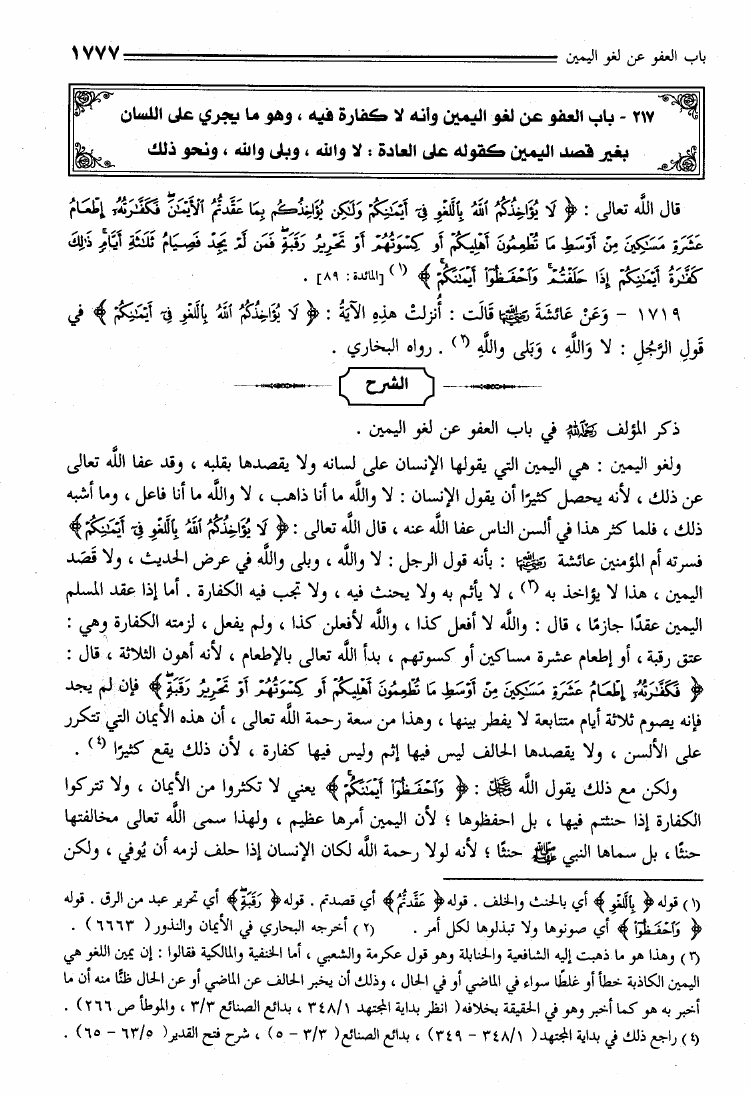 باب العفو عن لغو اليمين ١٧٧٧
٢١٧ - باب العفو عن لغو اليمين وأنه لا كفارة فيه ، وهو ما يجري على اللسان
بغير قصد اليمين كقوله على العادة : لا والله ، وبلى والله ، ونحو ذلك
قال الله تعالى : ﴿ لَا يُؤَاخِذُكُمُ اللَّهُ بِاللَّغْوِ فِي أَيْمَانِكُمْ وَلَكِن يُؤَاخِذُكُم بِمَا عَقَّدتُّمُ الْأَيْمَانَ فَكَفَّارَتُهُ إِطْعَامُ
عَشَرَةِ مَسَاكِينَ مِنْ أَوْسَطِ مَا تُطْعِمُونَ أَهْلِيكُمْ أَوْ كِسْوَتُهُمْ أَوْ تَحْرِيرُ رَقَبَةٍ فَمَن لَّمْ يَجِدْ فَصِيَامُ ثَلَاثَةِ أَيَّامٍ ذَلِكَ
كَفَّارَةُ أَيْمَانِكُمْ إِذَا حَلَفْتُمْ وَاحْفَظُوا أَيْمَانَكُمْ ﴾ (١) [المائدة: ٨٩] .
١٧١٩ - وَعَنْ عَائِشَةَ رضي الله عنها قَالَت : أُنزِلَتْ هذِهِ الآيَةُ : ﴿ لَا يُؤَاخِذُكُمُ اللَّهُ بِاللَّغْوِ فِي أَيْمَانِكُمْ ﴾ في
قَولِ الرَّجُلِ : لا وَاللَّهِ ، وَبَلى واللَّهِ (٢) . رواه البخاري .
الشرح
ذكر المؤلف رحمه الله في باب العفو عن لغو اليمين .
ولغو اليمين : هي اليمين التي يقولها الإنسان على لسانه ولا يقصدها بقلبه ، وقد عفا الله تعالى
عن ذلك ، لأنه يحصل كثيرًا أن يقول الإنسان : لا والله ما أنا ذاهب ، لا والله ما أنا فاعل ، وما أشبه
ذلك ، فلما كثر هذا في ألسن الناس عفا الله عنه ، قال الله تعالى : ﴿ لَا يُؤَاخِذُكُمُ اللَّهُ بِاللَّغْوِ فِي أَيْمَانِكُمْ ﴾
فسرته أم المؤمنين عائشة رضي الله عنها : بأنه قول الرجل : لا والله ، وبلى والله في عرض الحديث ، ولا قَصَد
اليمين ، هذا لا يؤاخذ به (٣) ، لا يأثم به ولا يحنث فيه ، ولا تجب فيه الكفارة . أما إذا عقد المسلم
اليمين عقدًا جازمًا ، قال : والله لا أفعل كذا ، والله لأفعلن كذا ، ولم يفعل ، لزمته الكفارة وهي :
عتق رقبة ، أو إطعام عشرة مساكين أو كسوتهم ، بدأ الله تعالى بالإطعام ، لأنه أهون الثلاثة ، قال :
﴿ فَكَفَّارَتُهُ إِطْعَامُ عَشَرَةِ مَسَاكِينَ مِنْ أَوْسَطِ مَا تُطْعِمُونَ أَهْلِيكُمْ أَوْ كِسْوَتُهُمْ أَوْ تَحْرِيرُ رَقَبَةٍ ﴾ فإن لم يجد
فإنه يصوم ثلاثة أيام متتابعة لا يفطر بينها ، وهذا من سعة رحمة الله تعالى ، أن هذه الأيمان التي تتكرر
على الألسن ، ولا يقصدها الحالف ليس فيها إثم وليس فيها كفارة ، لأن ذلك يقع كثيرًا (٤) .
ولكن مع ذلك يقول الله ﷻ : ﴿ وَاحْفَظُوا أَيْمَانَكُمْ ﴾ يعني لا تكثروا من الأيمان ، ولا تتركوا
الكفارة إذا حنثتم فيها ، بل احفظوها ؛ لأن اليمين أمرها عظيم ، ولهذا سمى الله تعالى مخالفتها
حنثًا ، بل سماها النبي ﷺ حنثًا ؛ لأنه لولا رحمة الله لكان الإنسان إذا حلف لزمه أن يُوفي ، ولكن
(١) قوله ﴿ بِاللَّغْوِ ﴾ أي بالحنث والخلف . قوله ﴿ عَقَّدتُّمُ ﴾ أي قصدتم . قوله ﴿ رَقَبَةٍ ﴾ أي تحرير عبد من الرق . قوله
﴿ وَاحْفَظُوا ﴾ أي صونوها ولا تبذلوها لكل أمر . (٢) أخرجه البخاري في الأيمان والنذور ( ٦٦٦٣ ) .
(٣) وهذا هو ما ذهبت إليه الشافعية والحنابلة وهو قول عكرمة والشعبي ، أما الحنفية والمالكية فقالوا : إن يمين اللغو هي
اليمين الكاذبة خطأ أو غلطًا سواء في الماضي أو في الحال ، وذلك أن يخبر الحالف عن الماضي أو عن الحال ظنًّا منه أن ما
أخبر به هو كما أخبر وهو في الحقيقة بخلافه( انظر بداية المجتهد ٣٤٨/١ ، بدائع الصنائع ٣/٣ ، والموطأ ص ٢٦٦ ) .
(٤) راجع ذلك في بداية المجتهد( ٣٤٨/١ - ٣٤٩ ) ، بدائع الصنائع( ٣/٣ - ٥ ) ، شرح فتح القدير( ٦٣/٥ - ٦٥ ) .